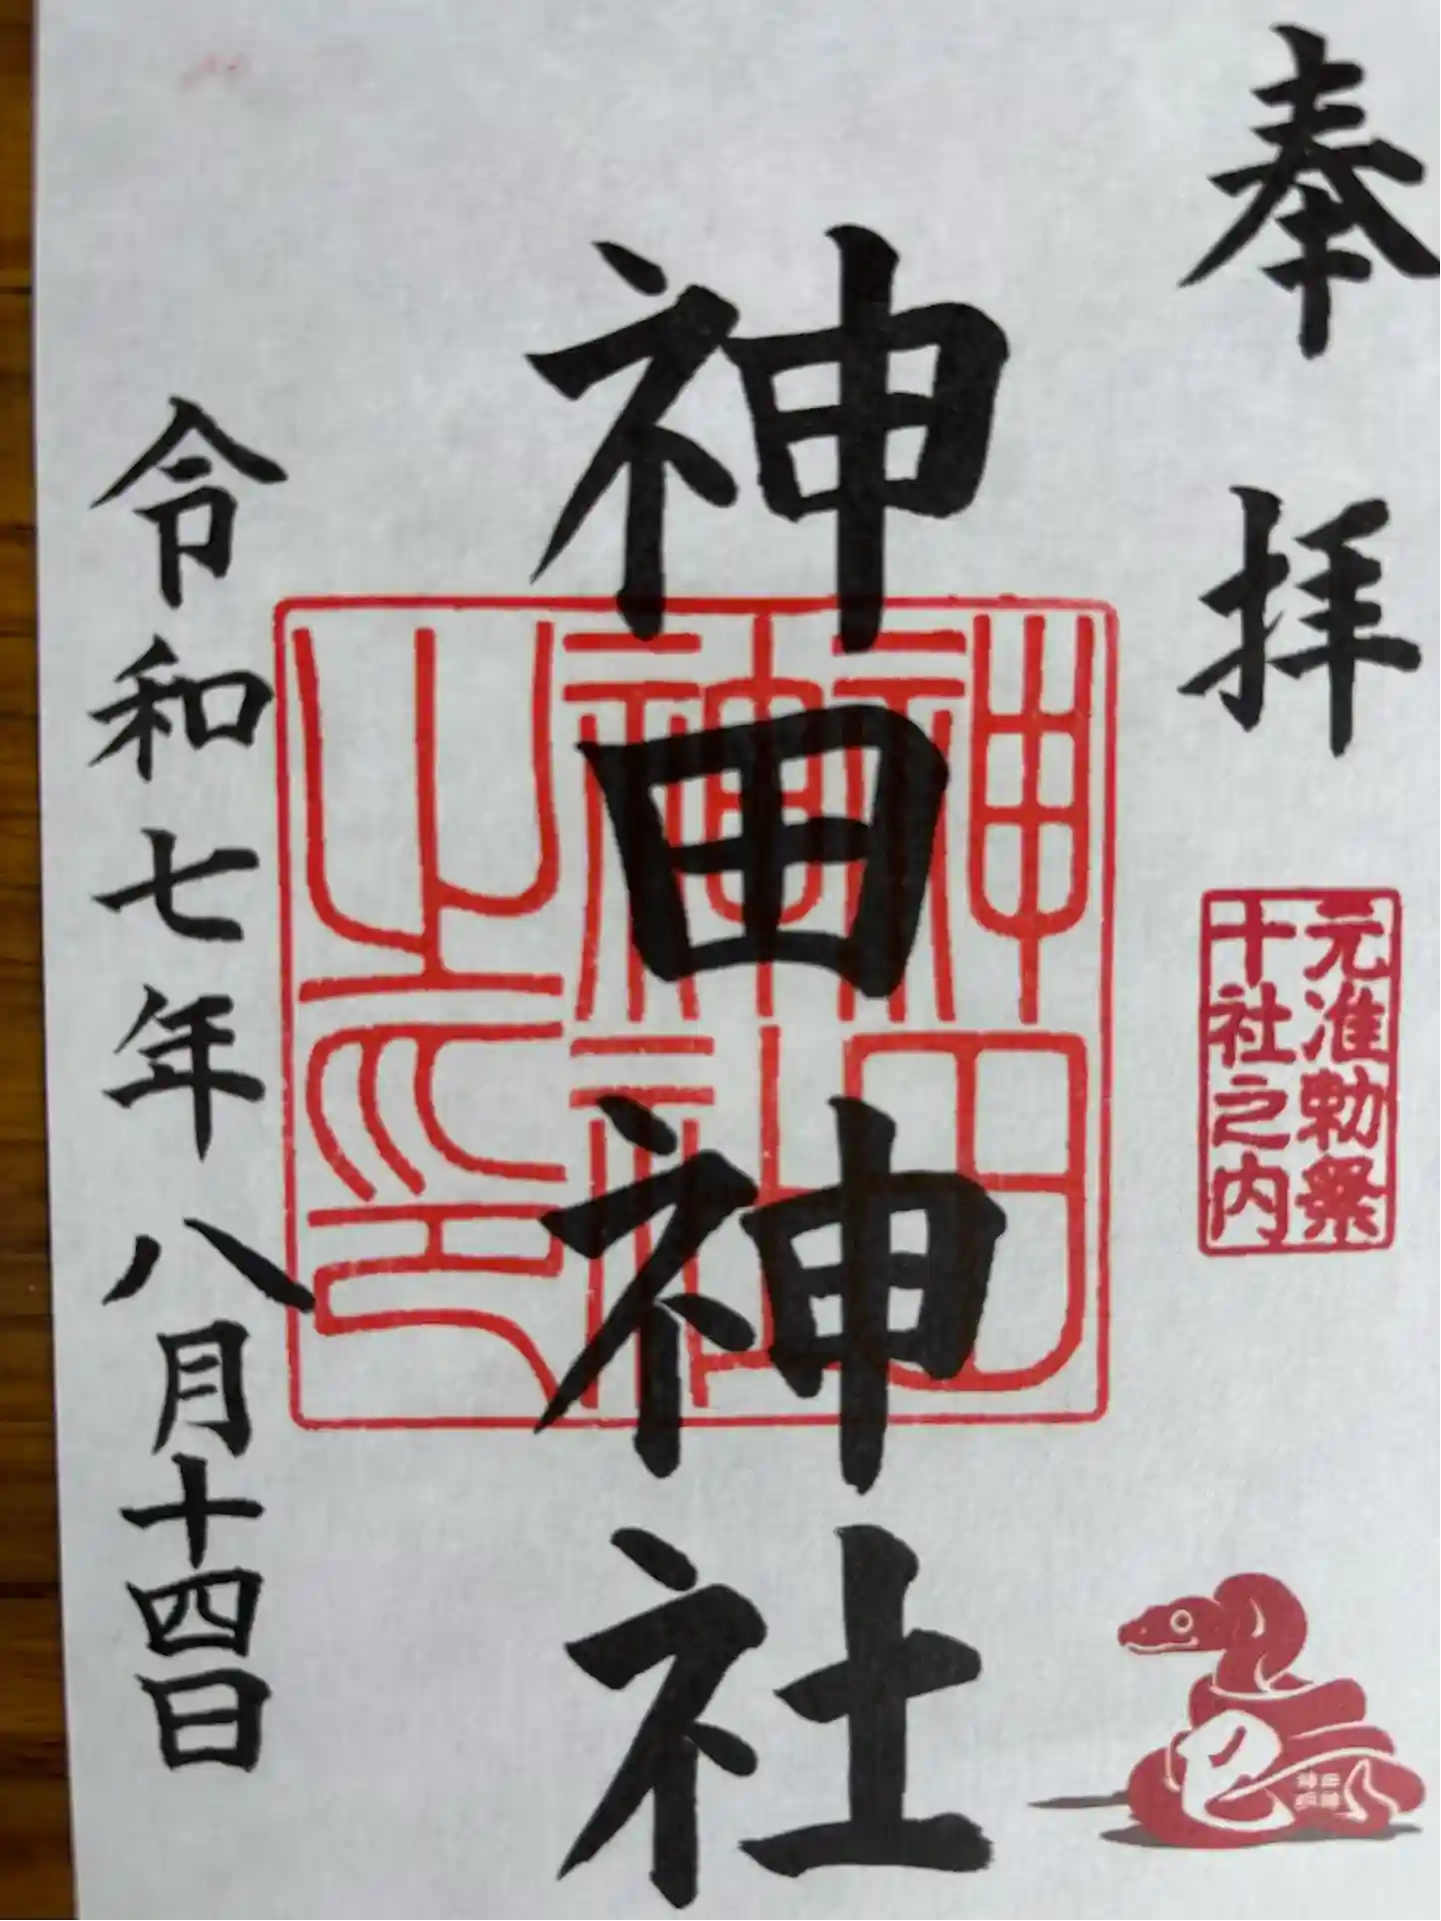 奉拝
元准勅祭
十社之内
巳
神田神社
神田神社之印
令和七年八月十四日